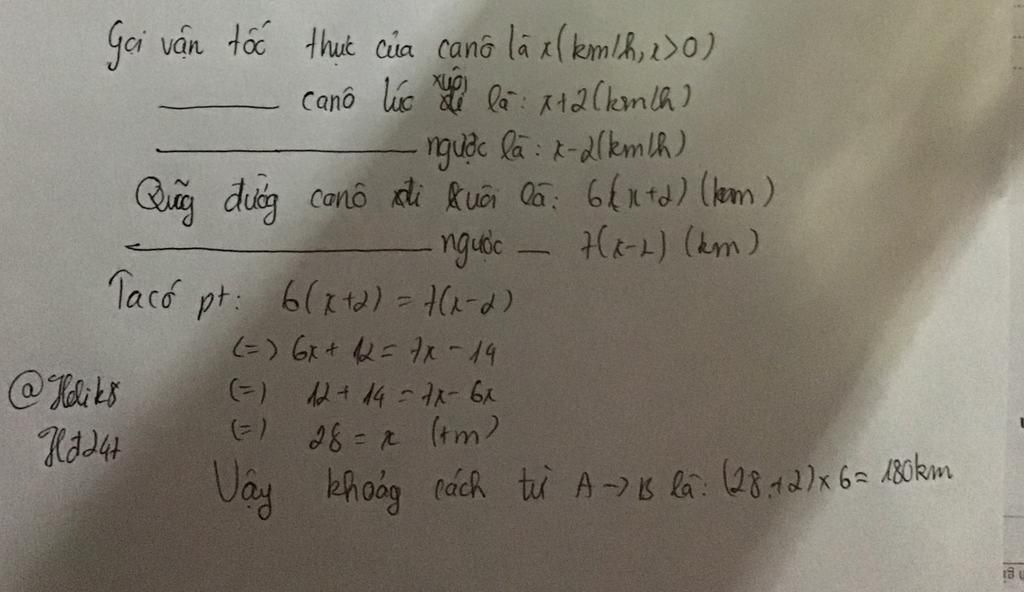 Gọi vận tốc thực của canô là x (km/h, x>0)
canô lúc xuôi là: x+2 (km/h)
ngược là: x-2 (km/h)
Quãng đường canô đi xuôi là: 6(x+2) (km)
ngược — 7(x-2) (km)
Ta có pt: 6(x+2) = 7(x-2)
(=) 6x + 12 = 7x - 14
(=) 12 + 14 = 7x - 6x
@Hdik8
(=) 28 = x (tm)
Hđ247
Vậy khoảng cách từ A -> B là: (28+2)x6= 180km